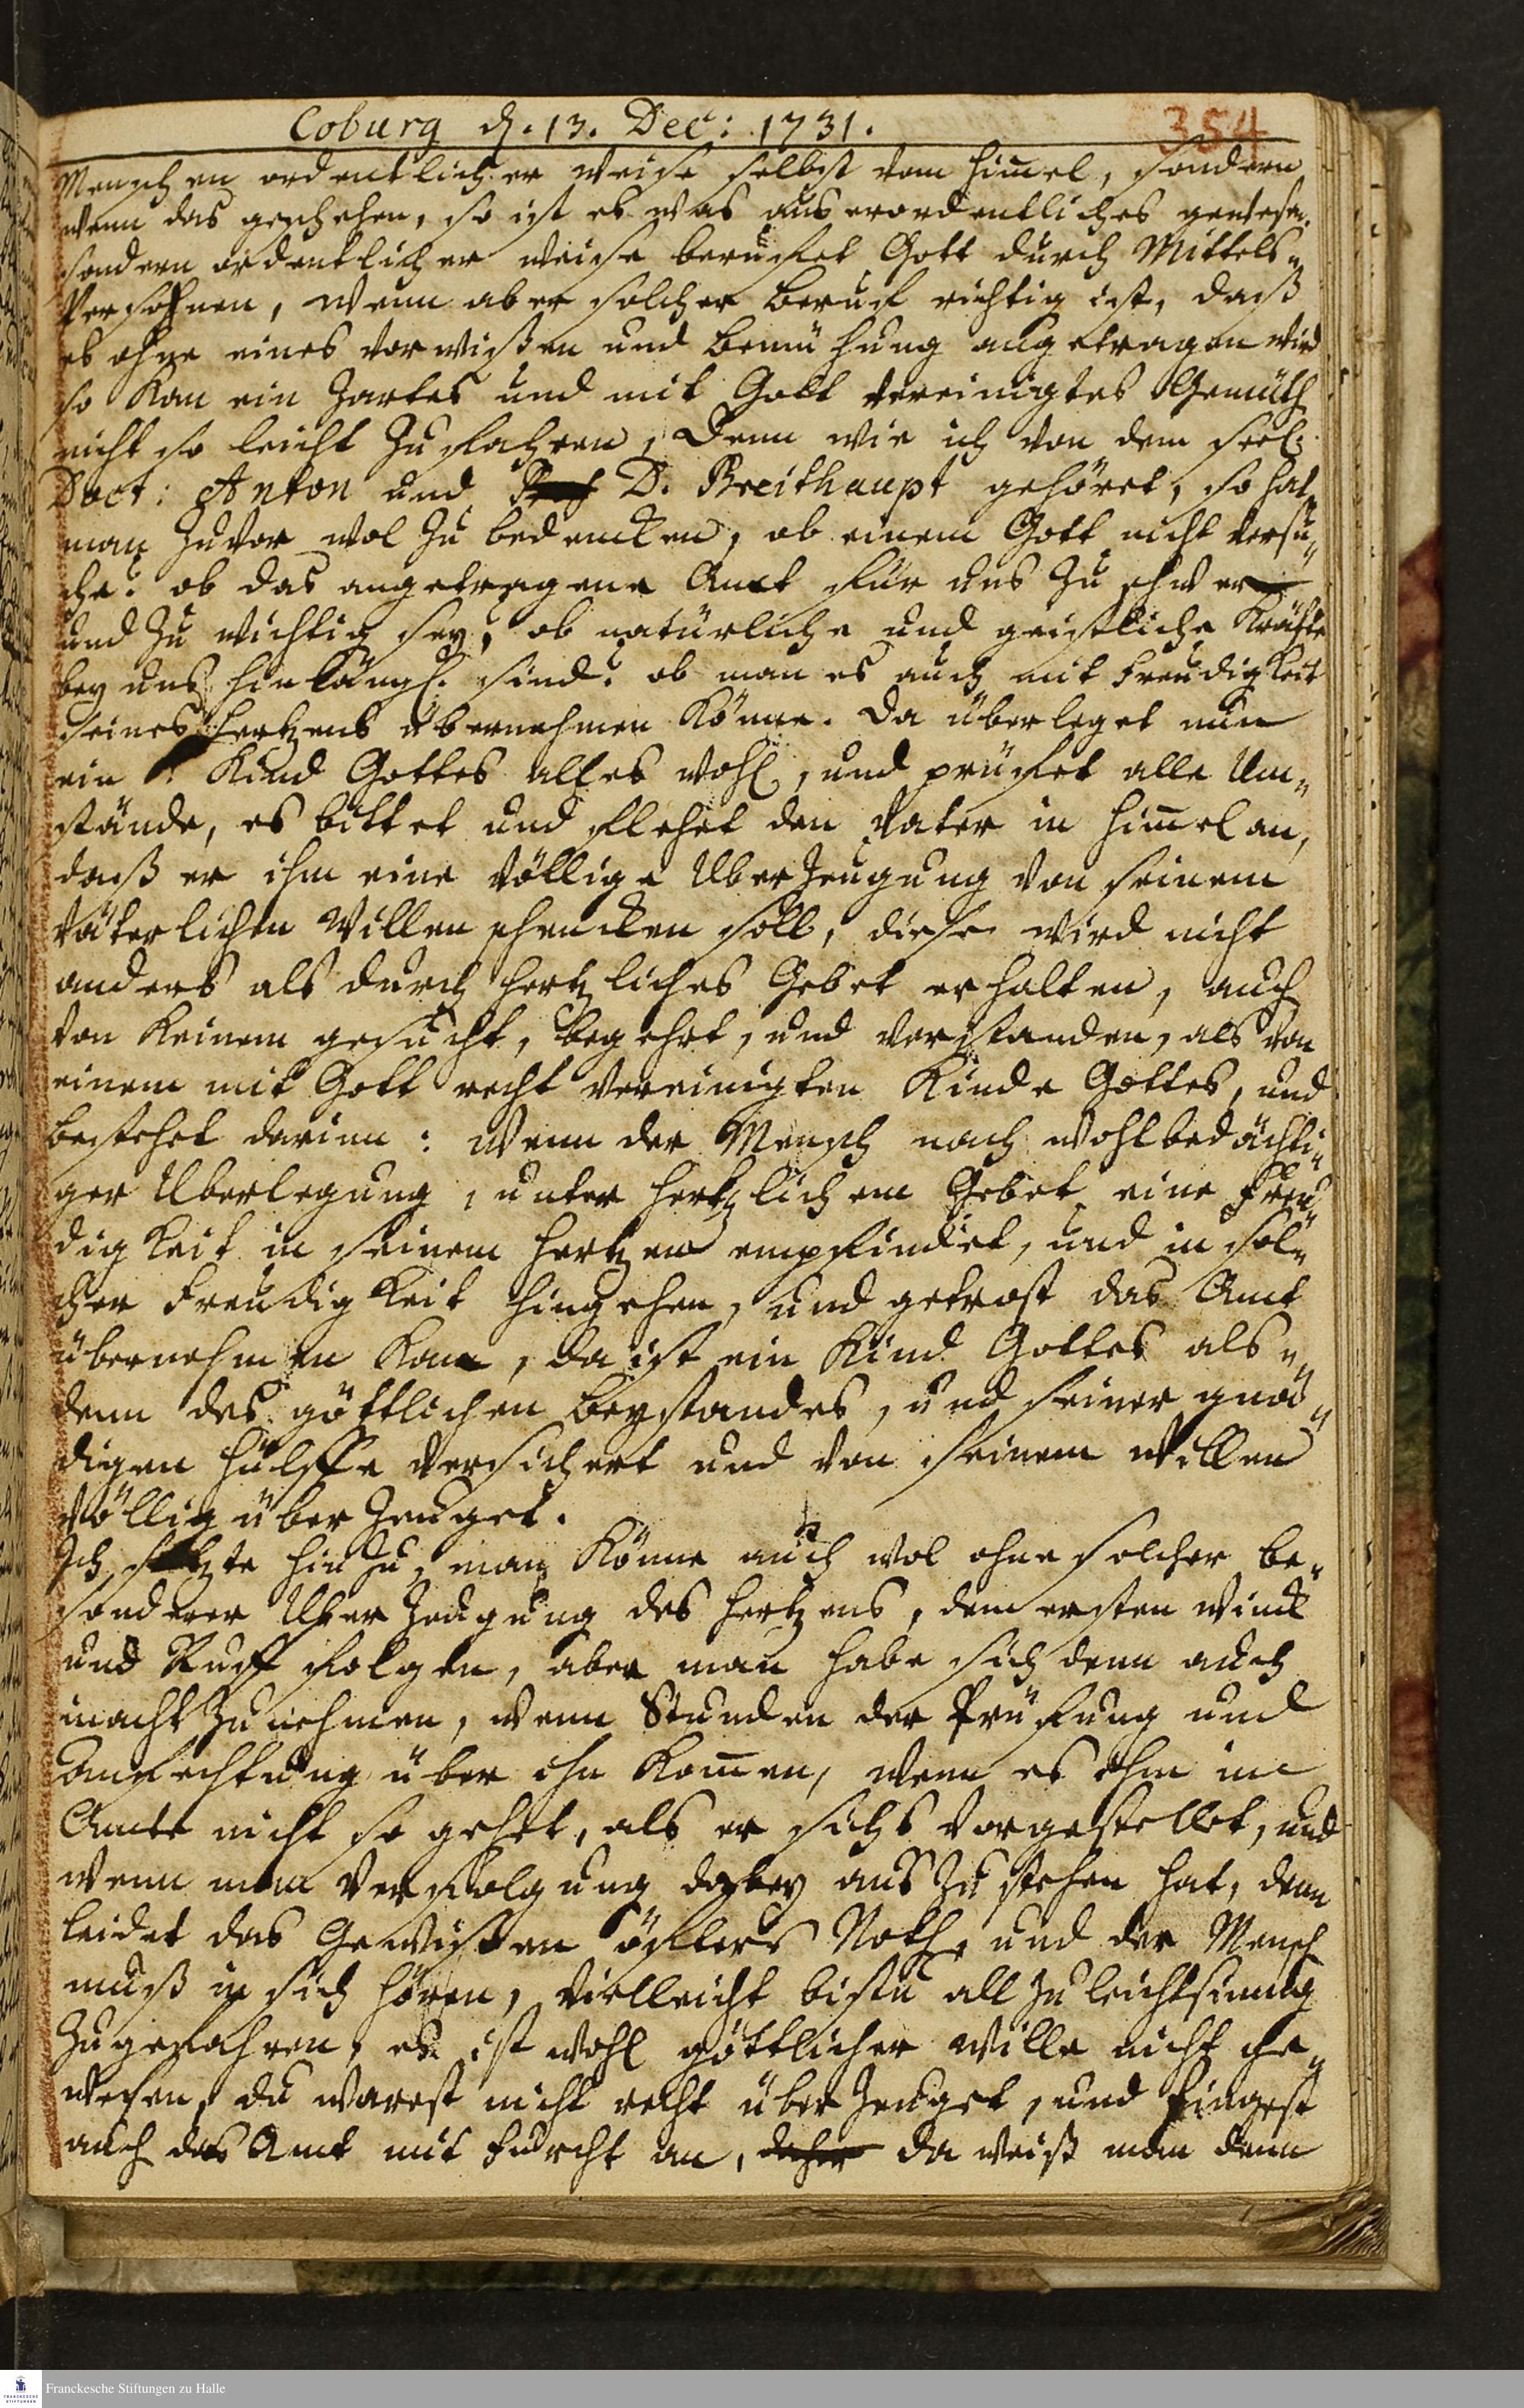 Coburg d. 13. Dec: 1731.
354
Menschen ordentlicher weise selbst vom Him̄el, sondern
wenn das geschehen, so ist es was auserordentliches gewesen.
sondern ordentlicher weise beruffet Gott durch Mittels-
Persohnen, wenn aber solcher Beruf richtig ist, daß
es ohne eines vorwißen und bemühung angetragen wird
so kan ein Zartes und mit Gott vereinigtes Gemüth
nicht so leicht Zufahren, denn wie ich von dem seel.
Doct: Anton und D. Breithaupt gehöret, so hat
man Zuvor wol Zu bedencken, ob einem Gott nicht versu-
che? ob das angetragene Amt für uns Zu schwer
und Zu wichtig sey, ob natürliche und geistliche Kräfte
bey uns hinlängl. sind? ob man es auch mit Freudigkeit
seines Hertzens übernehmen könne. Da überleget nun
ein Kind Gottes alles wohl, und prüfet alle Um-
stände, es bittet und flehet den Vater im Him̄el an,
daß er ihm eine völlige Uberzeugung von seinem
väterlichen Willen schencken soll, diese wird nicht
anders als durch hertzliches Gebet erhalten, auch
von keinem gesucht, begehrt, und verstanden, als von
einem mit Gott recht vereinigten Kinde Gottes, und
bestehet darinn: Wenn der Mensch nach wohlbedächti-
ger Uberlegung, unter hertzlichem Gebet eine Freu-
digkeit in seinem Hertzen empfindet, und in sol-
cher Freudigkeit hingehen, und getrost das Amt
übernehmen kan, da ist ein Kind Gottes als-
denn des göttlichen Beystandes, und seiner gnä-
digen Hülffe versichert und von seinem Willen
völlig überzeuget.
Ich setzte hinzu, man könne auch wol ohne solcher be-
sonderer Uberzeugung des Hertzens, dem ersten Winck
und Ruff folgen, aber man habe sich denn auch
inacht Zu nehmen, wenn Stunden der Prüfung und
Anfechtung über ihn kom̄en, wenn es ihm im
Amte nicht so gehet, als er sichs vorgestellet, und
wenn man Verfolgung dabey auszustehen hat, denn
leidet das Gewißen öfters Noth, und der Mensch
muß in sich hören, vielleicht bistu all Zu leichtsinnig
Zugefahren, es ist wohl göttlicher Wille nicht ge-
wesen, du warest nicht recht überzeuget, und fingest
auch das Amt mit Furcht an, daher da weiß man denn
Franckesche Stiftungen zu Halle